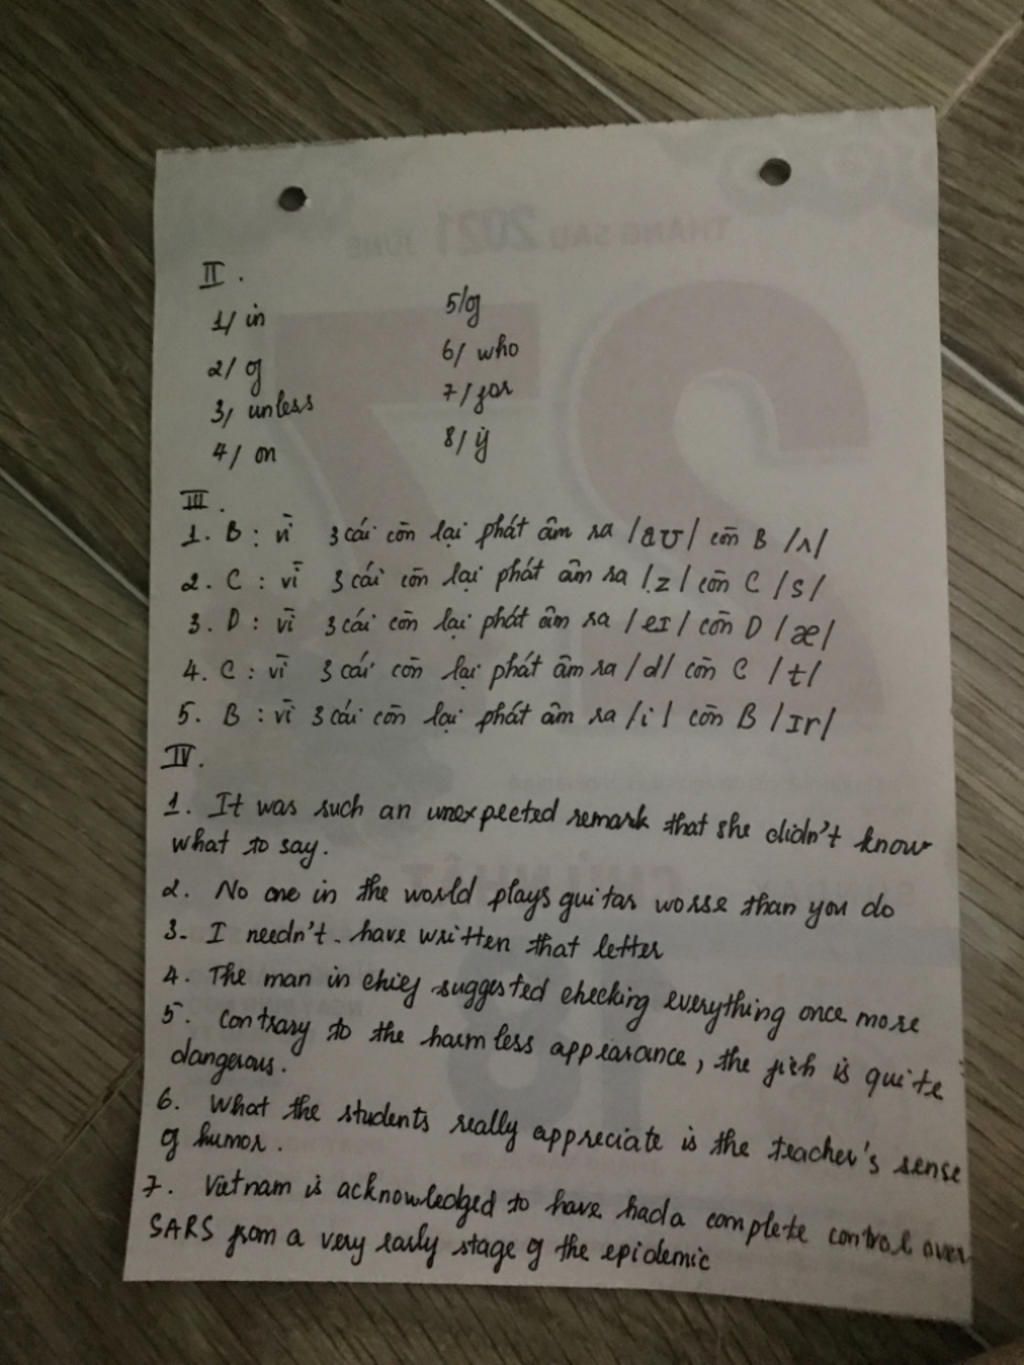 THÁNG SÁU 2021 JUNE
27
II.
1/ in
2/ of
3/ unless
4/ on
5/of
6/ who
7/ for
8/ if
III.
1. B : vì 3 cái còn lại phát âm ra /aʊ/ còn B /ʌ/
2. C : vì 3 cái còn lại phát âm ra /z/ còn C /s/
3. D : vì 3 cái còn lại phát âm ra /eɪ/ còn D /æ/
4. C : vì 3 cái còn lại phát âm ra /d/ còn C /t/
5. B : vì 3 cái còn lại phát âm ra /i/ còn B /ɪr/
IV.
1. It was such an unexpected remark that she didn't know
what to say.
2. No one in the world plays guitar worse than you do
3. I needn't have written that letter
4. The man in chief suggested checking everything once more
5. Contrary to the harmless appearance, the fish is quite
dangerous.
6. What the students really appreciate is the teacher's sense
of humor.
7. Vietnam is acknowledged to have had a complete control over
SARS from a very early stage of the epidemic